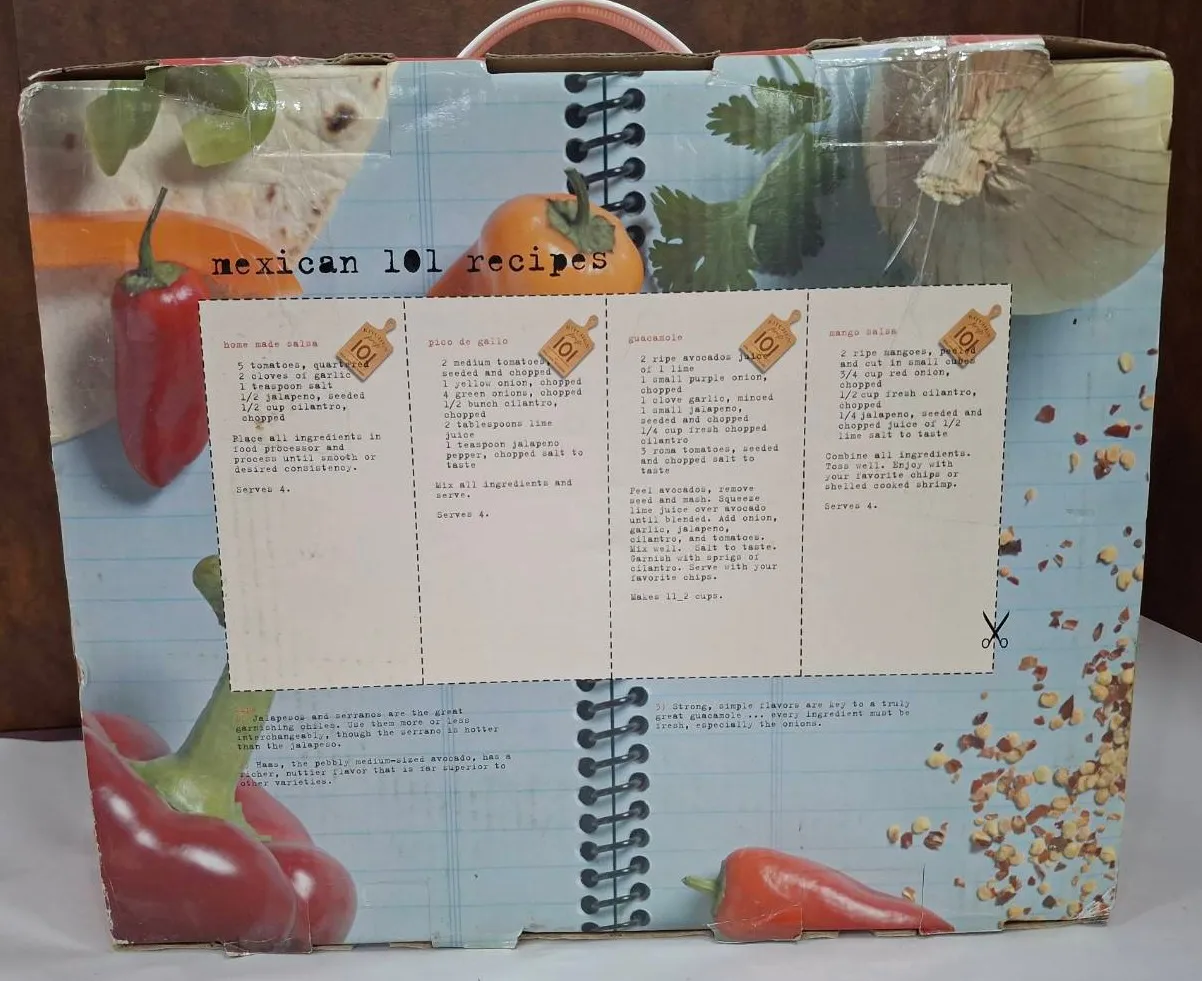 mexican 101 recipes
home made salsa
101
5 tomatoes, quartered
2 cloves of garlic
1 teaspoon salt
1/2 jalapeno, seeded
1/2 cup cilantro,
chopped
Place all ingredients in
food processor and
process until smooth or
desired consistency.
Serves 4.
pico de gallo
101
2 medium tomatoes,
seeded and chopped
1 yellow onion, chopped
4 green onions, chopped
1/2 bunch cilantro,
chopped
2 tablespoons lime
juice
1 teaspoon jalapeno
pepper, chopped salt to
taste
Mix all ingredients and
serve.
Serves 4.
guacamole
101
2 ripe avocados juice
of 1 lime
1 small purple onion,
chopped
1 clove garlic, minced
1 small jalapeno,
seeded and chopped
1/4 cup fresh chopped
cilantro
3 roma tomatoes, seeded
and chopped salt to
taste
Peel avocados, remove
seed and mash. Squeeze
lime juice over avocado
until blended. Add onion,
garlic, jalapeno,
cilantro, and tomatoes.
Mix well. Salt to taste.
Garnish with sprigs of
cilantro. Serve with your
favorite chips.
Makes 11_2 cups.
mango salsa
101
2 ripe mangoes, peeled
and cut in small cubes
3/4 cup red onion,
chopped
1/2 cup fresh cilantro,
chopped
1/4 jalapeno, seeded and
chopped juice of 1/2
lime salt to taste
Combine all ingredients.
Toss well. Enjoy with
your favorite chips or
shelled cooked shrimp.
Serves 4.
Jalapesos and serranos are the great
garnishing chiles. Use them more or less
interchangeably, though the serrano is hotter
than the jalapeso.
Haas, the pebbly medium-sized avocado, has a
richer, nuttier flavor that is far superior to
other varieties.
5) Strong, simple flavors are key to a truly
great guacamole ... every ingredient must be
fresh, especially the onions.